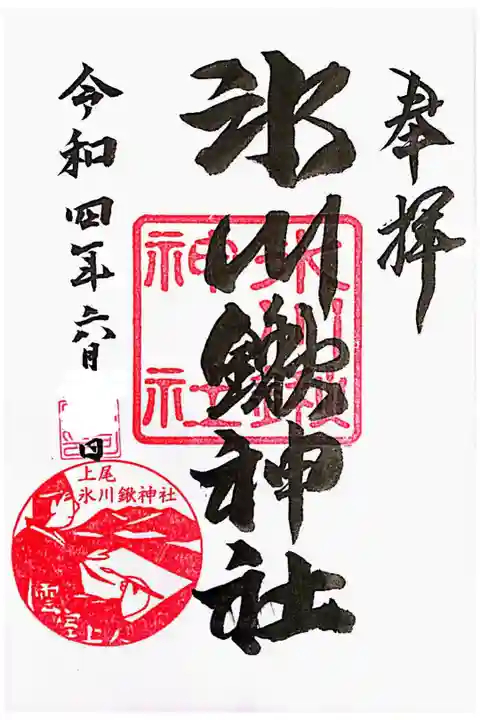 奉拝
氷川鍬神社
氷川鍬神社
令和四年六月
日
上尾
氷川鍬神社
雲室上人